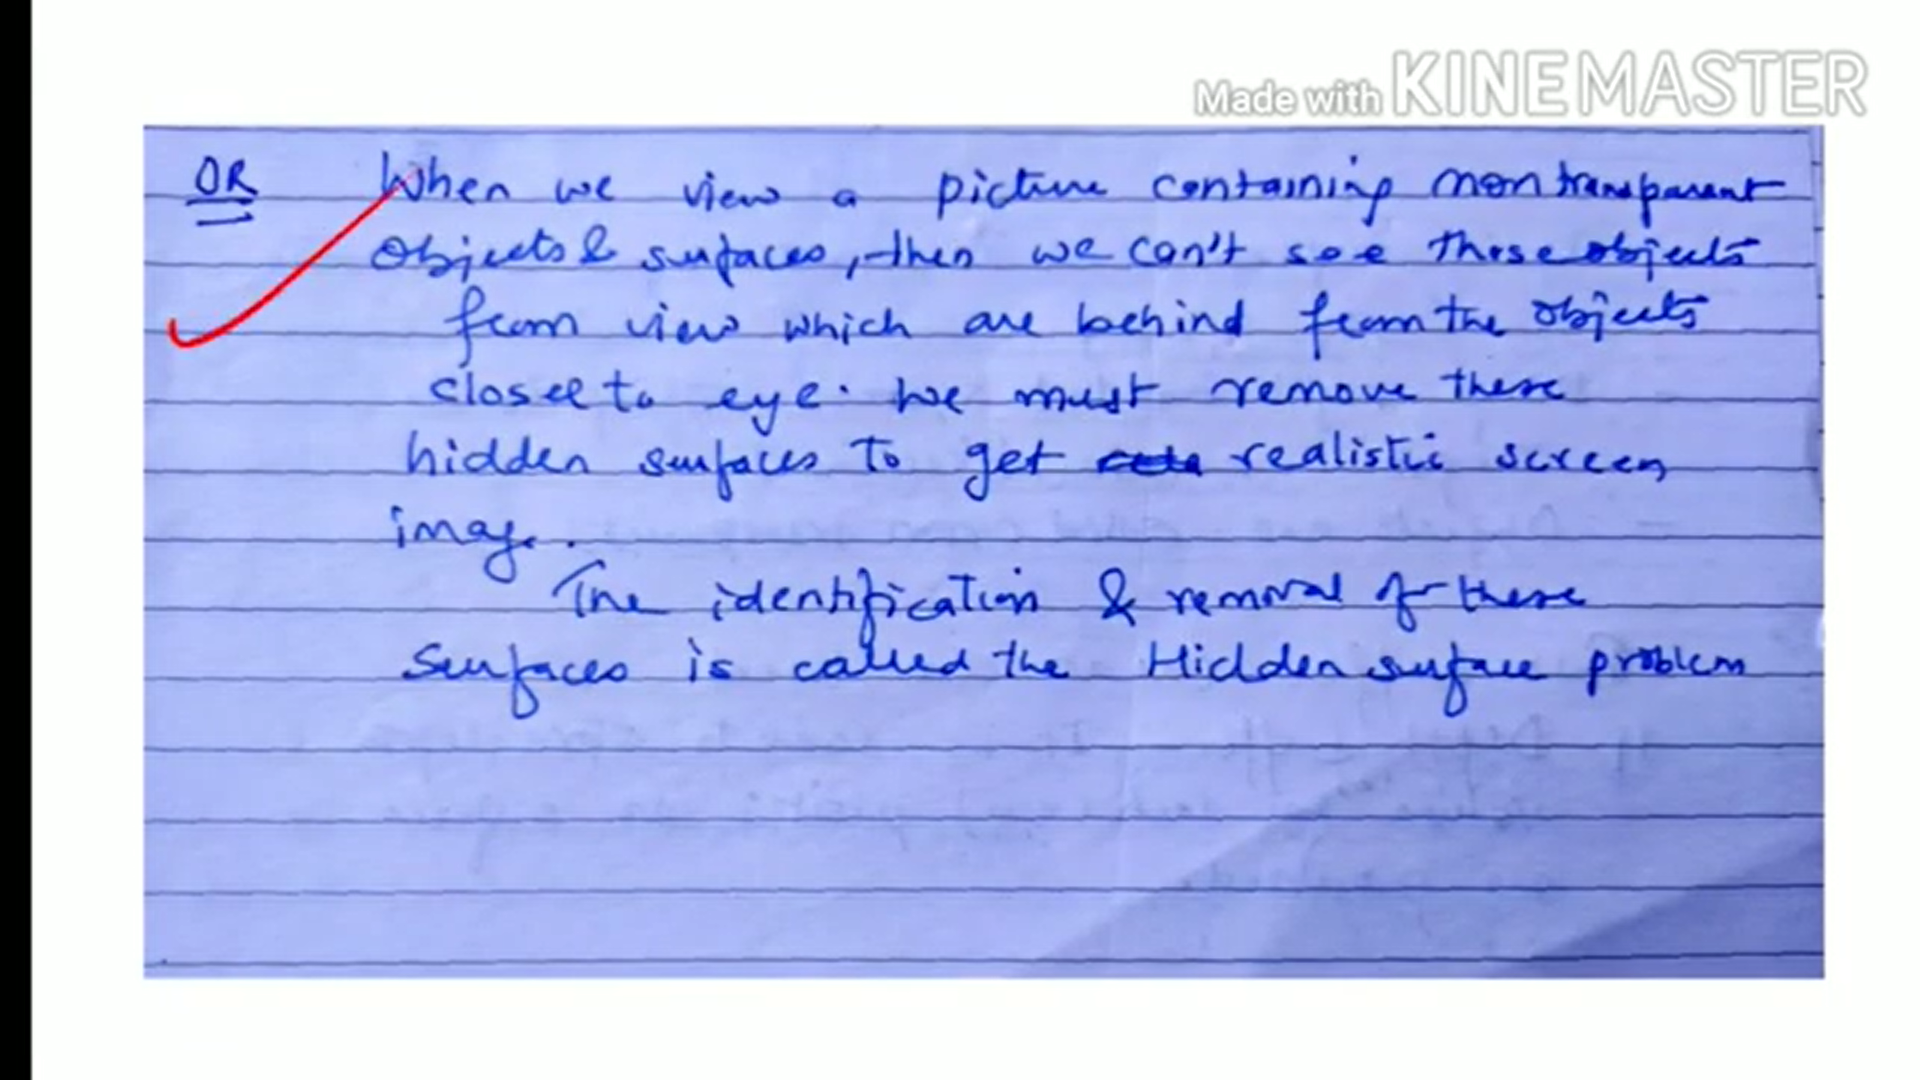 Made with KINEMASTER
OR When we view a picture containing nontransparent
objects & surfaces, then we can't see those objects
from view which are behind from the objects
closer to eye. We must remove these
hidden surfaces to get realistic screen
image.
The identification & removal of these
surfaces is called the Hidden surface problem